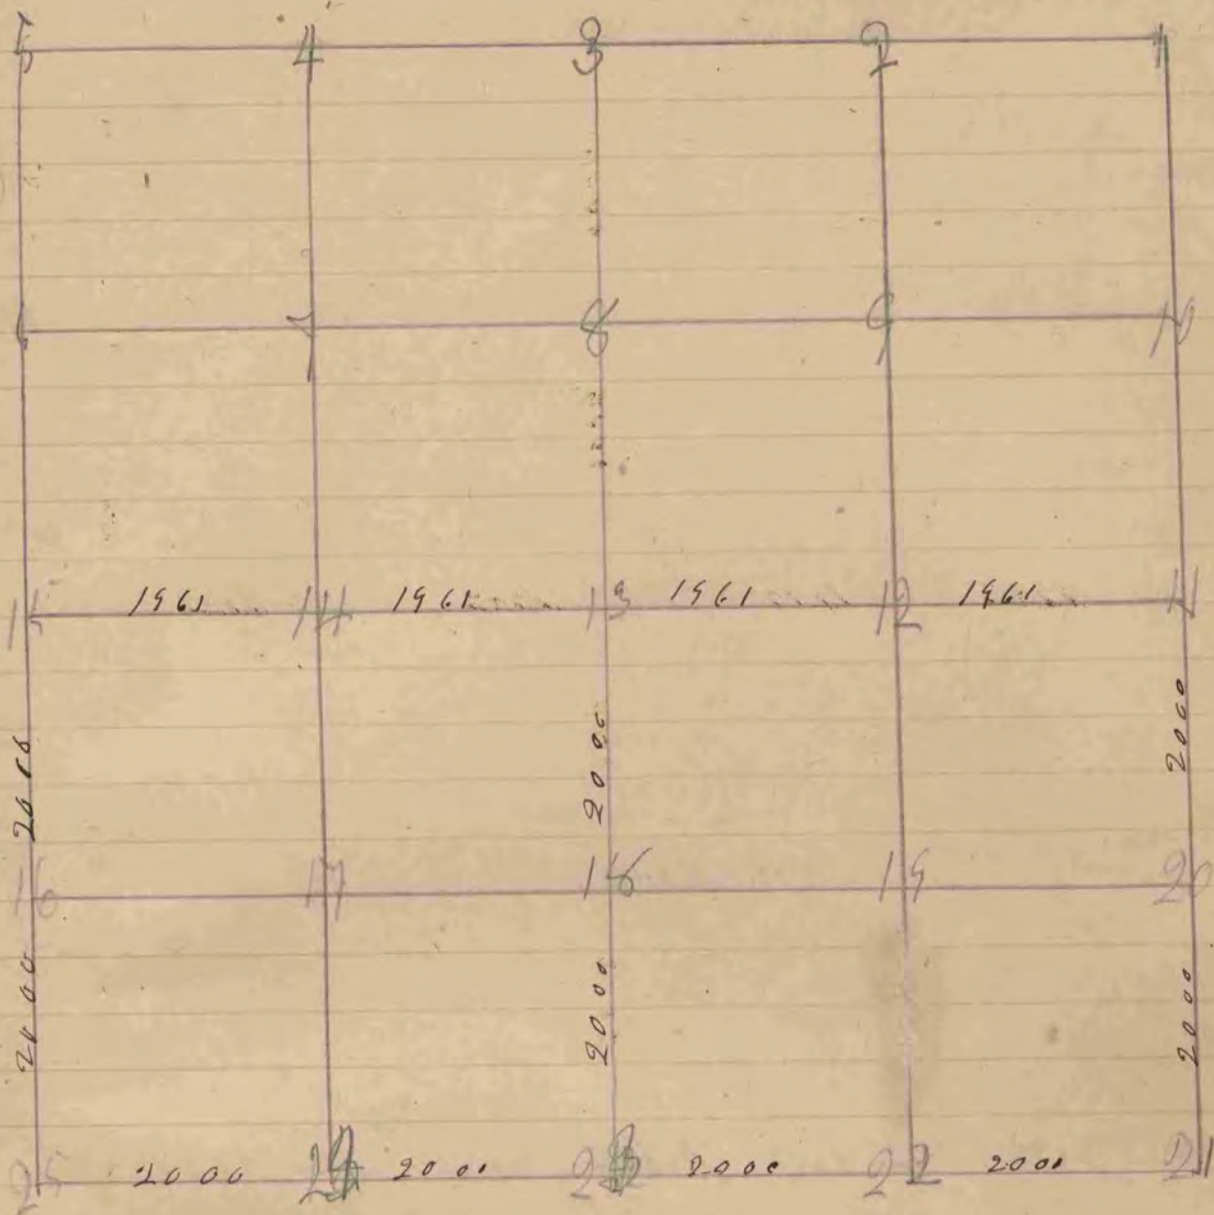 5 4 3 2 1
6 7 8 9 10
1961 1961 1961 1961
15 14 13 12 11
2000 2000
16 17 18 19 20
2000 2000 2000
25 2000 24 2000 23 2000 22 2000 21